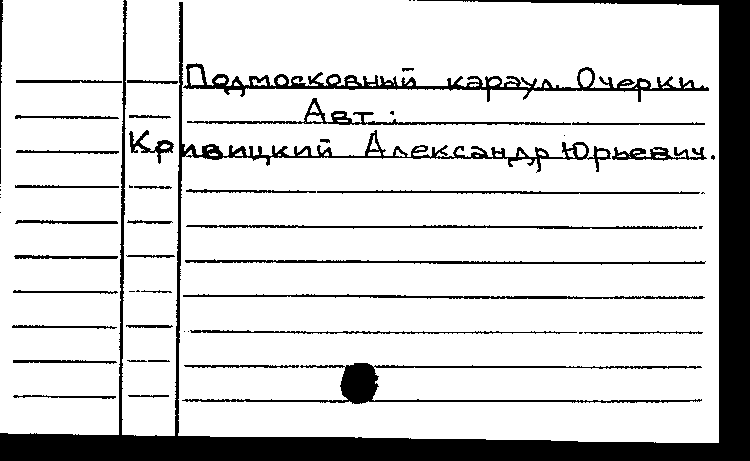 Подмосковный караул. Очерки.
Авт.:
Кривицкий Александр Юрьевич.